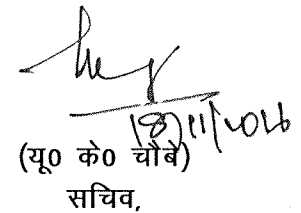 18/11/2016
(यू0 के0 चौबे)
सचिव,